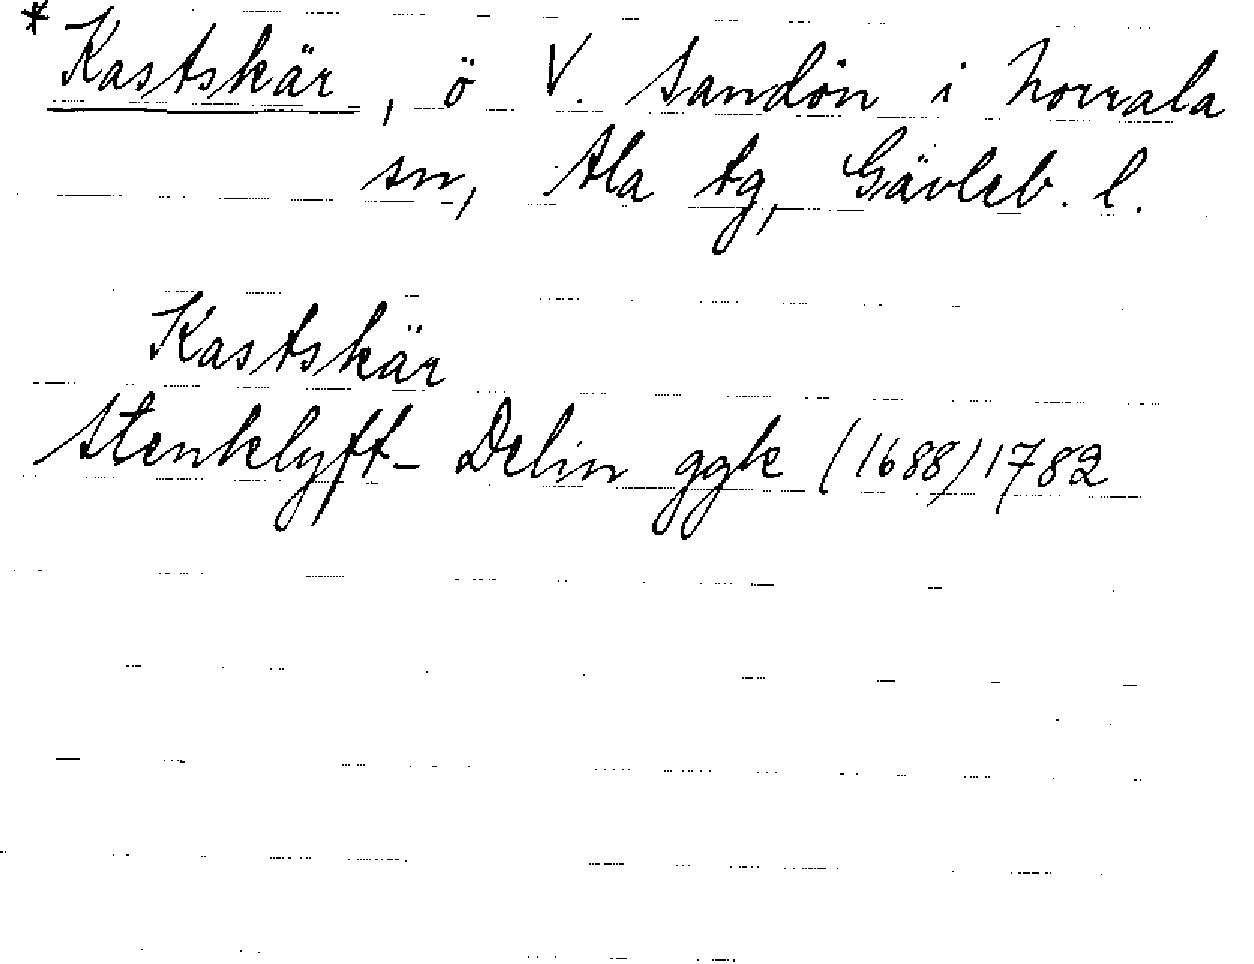 * Kastskär, ö V. Sandön i Norrala
sn, Ala tg, Gävleb. l.
Kastskär
Stenklyft-Delin ggk (1688) 1782